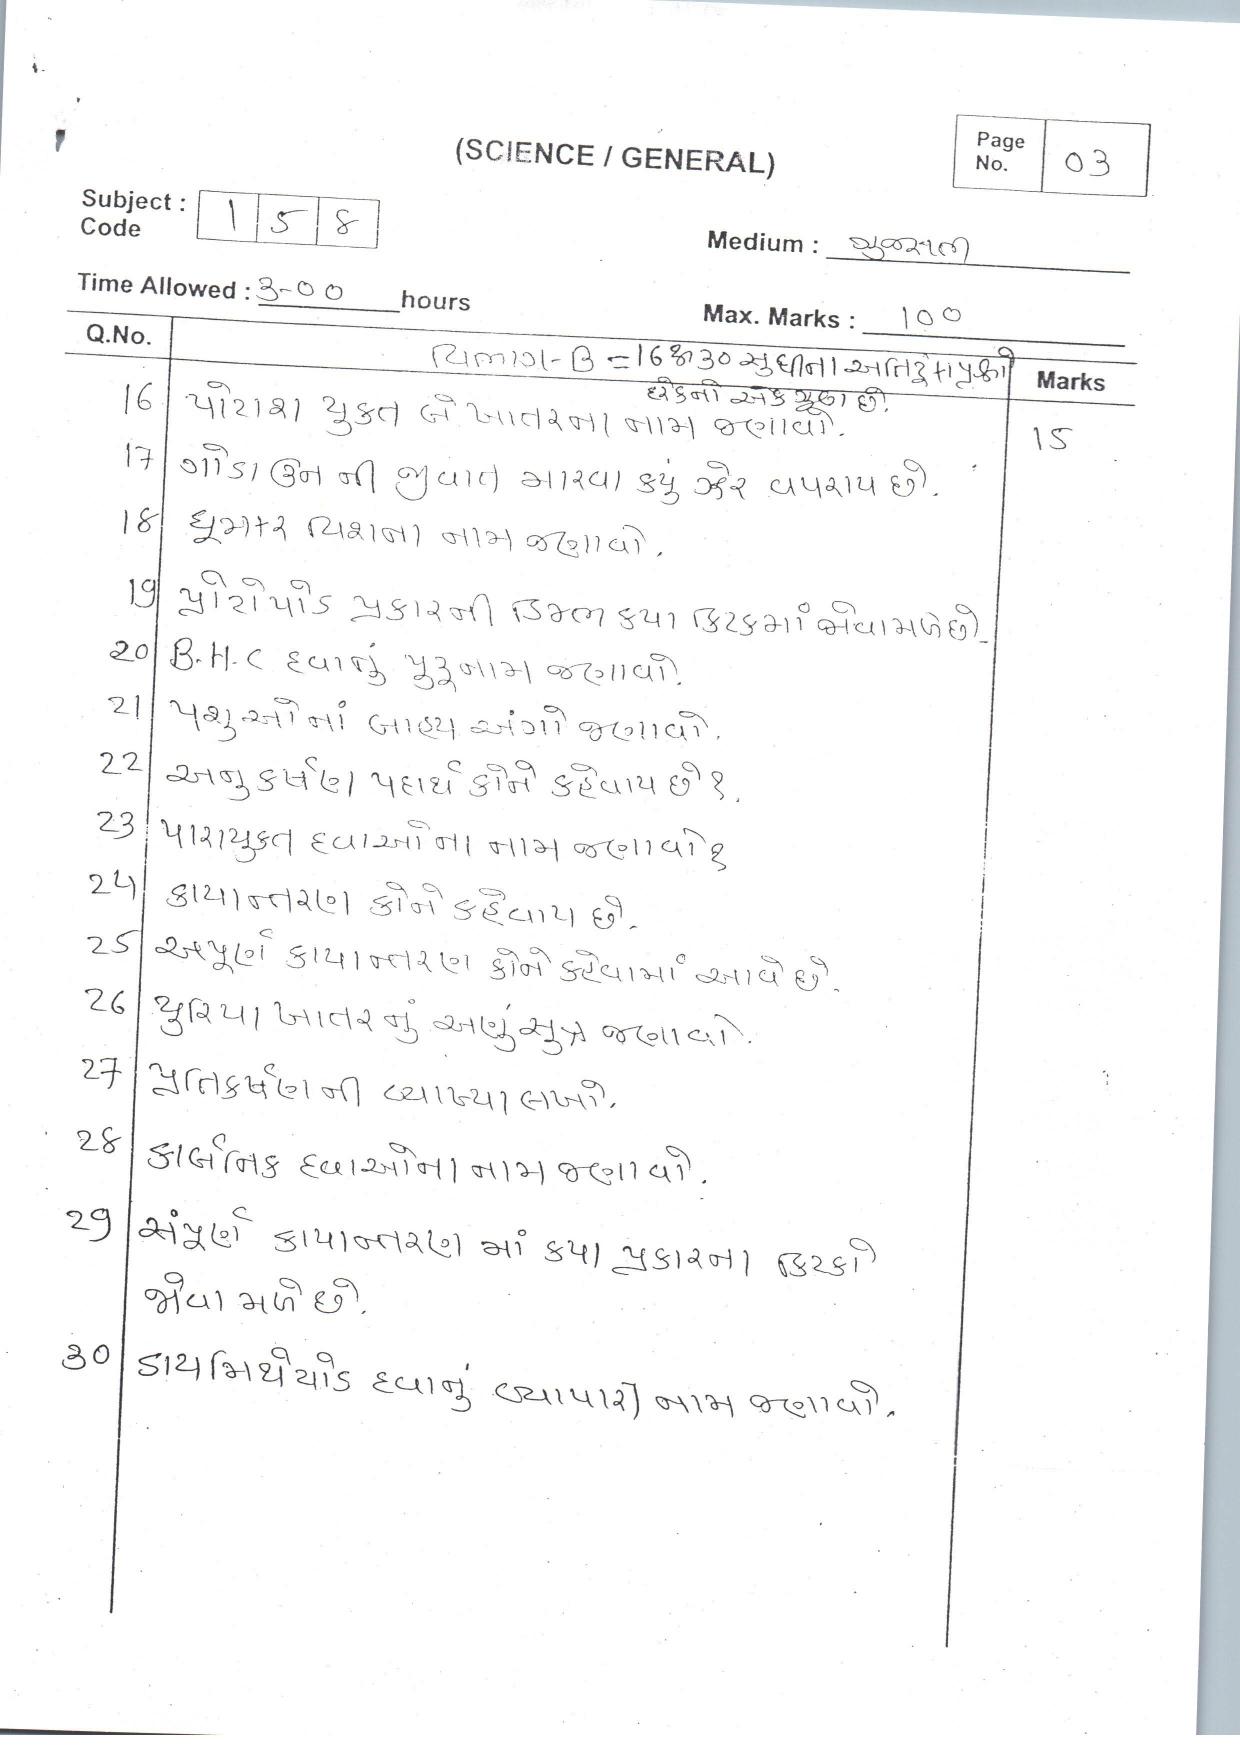 (SCIENCE / GENERAL)
Page No. 03
Subject : Code 158
Medium : ગુજરાતી
Time Allowed : 3-00 hours
Max. Marks : 100
Q.No.
Marks
વિભાગ-B = 16 થી 30 સુધીના અતિટૂંકા પ્રશ્નો
દરેકનો એક ગુણ છે.
15
16 પોટાશ યુક્ત બે ખાતરના નામ જણાવો.
17 ગોડાઉન ની જીવાત મારવા કયું ઝેર વપરાય છે.
18 ધૂમકર વિશના નામ જણાવો.
19 પ્રોટોપોડ પ્રકારની ડિમ્ભ કયા કિટકમાં જોવા મળે છે.
20 B.H.C દવાનું પુરૂ નામ જણાવો.
21 પશુઓનાં બાહ્ય અંગો જણાવો.
22 અનુકર્ષણ પદાર્થ કોને કહેવાય છે?.
23 પારાયુક્ત દવાઓના નામ જણાવો?
24 કાયાન્તરણ કોને કહેવાય છે.
25 અપૂર્ણ કાયાન્તરણ કોને કહેવામાં આવે છે.
26 યુરિયા ખાતરનું અણુંસુત્ર જણાવો.
27 પ્રતિકર્ષણ ની વ્યાખ્યા લખો.
28 કાર્બનિક દવાઓના નામ જણાવો.
29 સંપૂર્ણ કાયાન્તરણ માં કયા પ્રકારના કિટકો
જોવા મળે છે.
30 ડાયમિથેયોડ દવાનું વ્યાપારી નામ જણાવો.